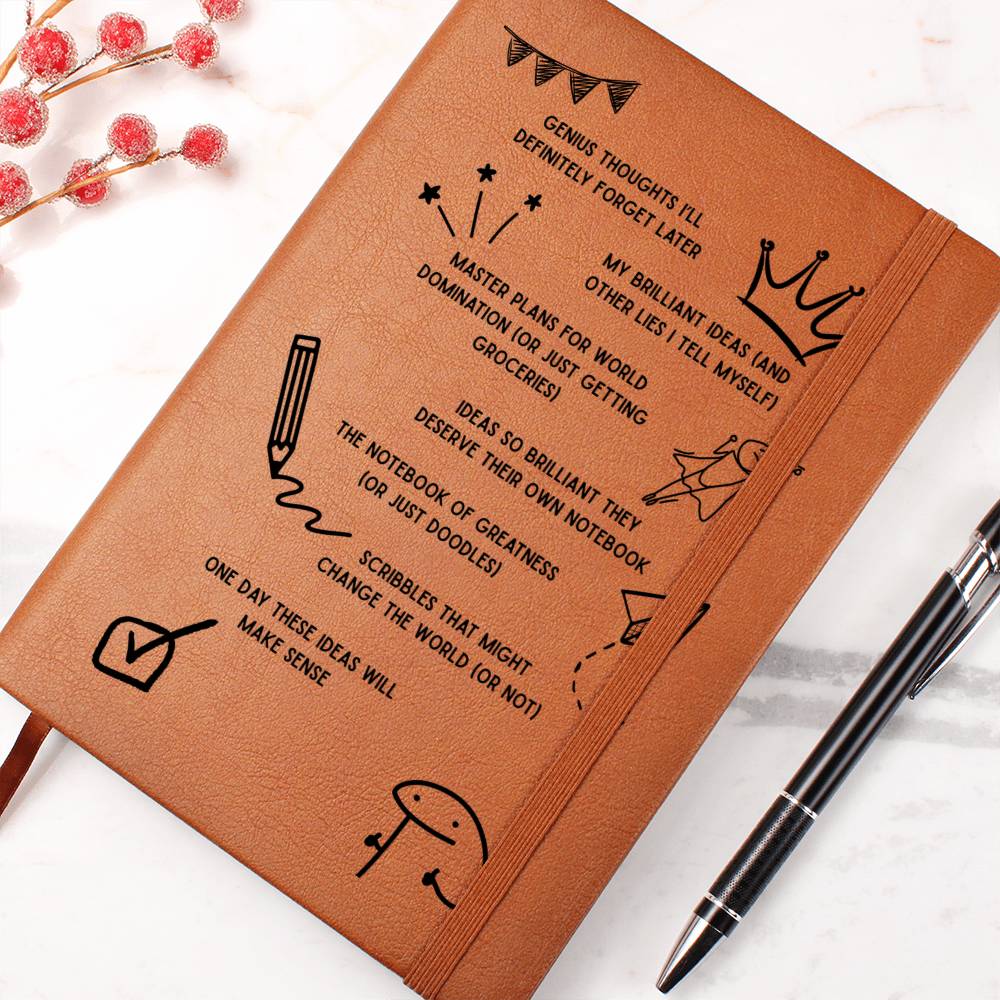 GENIUS THOUGHTS I'LL
DEFINITELY FORGET LATER
MY BRILLIANT IDEAS (AND
OTHER LIES I TELL MYSELF)
MASTER PLANS FOR WORLD
DOMINATION (OR JUST GETTING
GROCERIES)
IDEAS SO BRILLIANT THEY
DESERVE THEIR OWN NOTEBOOK
THE NOTEBOOK OF GREATNESS
(OR JUST DOODLES)
SCRIBBLES THAT MIGHT
CHANGE THE WORLD (OR NOT)
ONE DAY THESE IDEAS WILL
MAKE SENSE